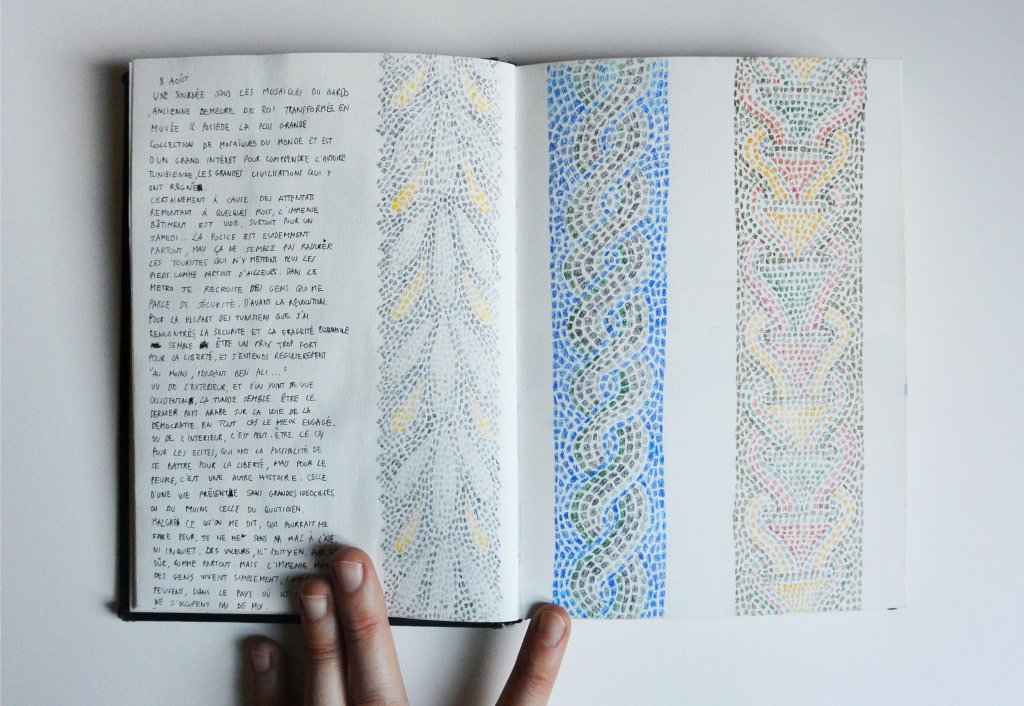 8 AOÛT
UNE JOURNÉE SOUS LES MOSAÏQUES DU BARDO
, ANCIENNE DEMEURE DE ROI TRANSFORMÉE EN
MUSÉE IL POSSÈDE LA PLUS GRANDE
COLLECTION DE MOSAÏQUES DU MONDE ET EST
D'UN GRAND INTÉRÊT POUR COMPRENDRE L'HISTOIRE
TUNISIENNE, LES GRANDES CIVILISATIONS QUI Y
ONT RÉGNÉ
CERTAINEMENT À CAUSE DES ATTENTATS
REMONTANT À QUELQUES MOIS, L'IMMENSE
BÂTIMENT EST VIDE, SURTOUT POUR UN
SAMEDI... LA POLICE EST EVIDEMMENT
PARTOUT, MAIS ÇA NE SEMBLE PAS RASSURER
LES TOURISTES QUI N'Y METTENT PLUS LES
PIEDS. COMME PARTOUT D'AILLEURS. DANS LE
METRO JE RECROISE DES GENS QUI ME
PARLE DE SÉCURITÉ. D'AVANT LA RÉVOLUTION.
POUR LA PLUPART DES TUNISIENS QUE J'AI
RENCONTRÉS LA SECURITÉ ET LA FRAGILITÉ ÉCONOMIQUE
SEMBLE ÊTRE UN PRIX TROP FORT
POUR LA LIBERTÉ, ET J'ENTENDS REGULIEREMENT
"AU MOINS, PENDANT BEN ALI ..."
VU DE L'EXTERIEUR, ET D'UN POINT DE VUE
OCCIDENTAL, LA TUNISIE SEMBLE ÊTRE LE
DERNIER PAYS ARABE SUR LA VOIE DE LA
DÉMOCRATIE. EN TOUT CAS LE MIEUX ENGAGÉ.
VU DE L'INTERIEUR, C'EST PEUT-ÊTRE LE CAS
POUR LES ELITES, QUI ONT LA POSSIBILITÉ DE
SE BATTRE POUR LA LIBERTÉ, MAIS POUR LE
PEUPLE, C'EST UNE AUTRE HISTOIRE. CELLE
D'UNE VIE PRÉSENTE SANS GRANDES IDEOLOGIES,
OU DU MOINS CELLE DU QUOTIDIEN.
MALGRÉ CE QU'ON ME DIT, QUI POURRAIT ME
FAIRE PEUR, JE NE ME SENS NI MAL À L'AISE,
NI INQUIET. DES VOLEURS, IL DOIT Y EN
SÛR, COMME PARTOUT. MAIS L'IMMENSE
DES GENS VIVENT SIMPLEMENT,
PEUVENT, DANS LE PAYS OÙ
NE S'OCCUPENT PAS DE MOI.